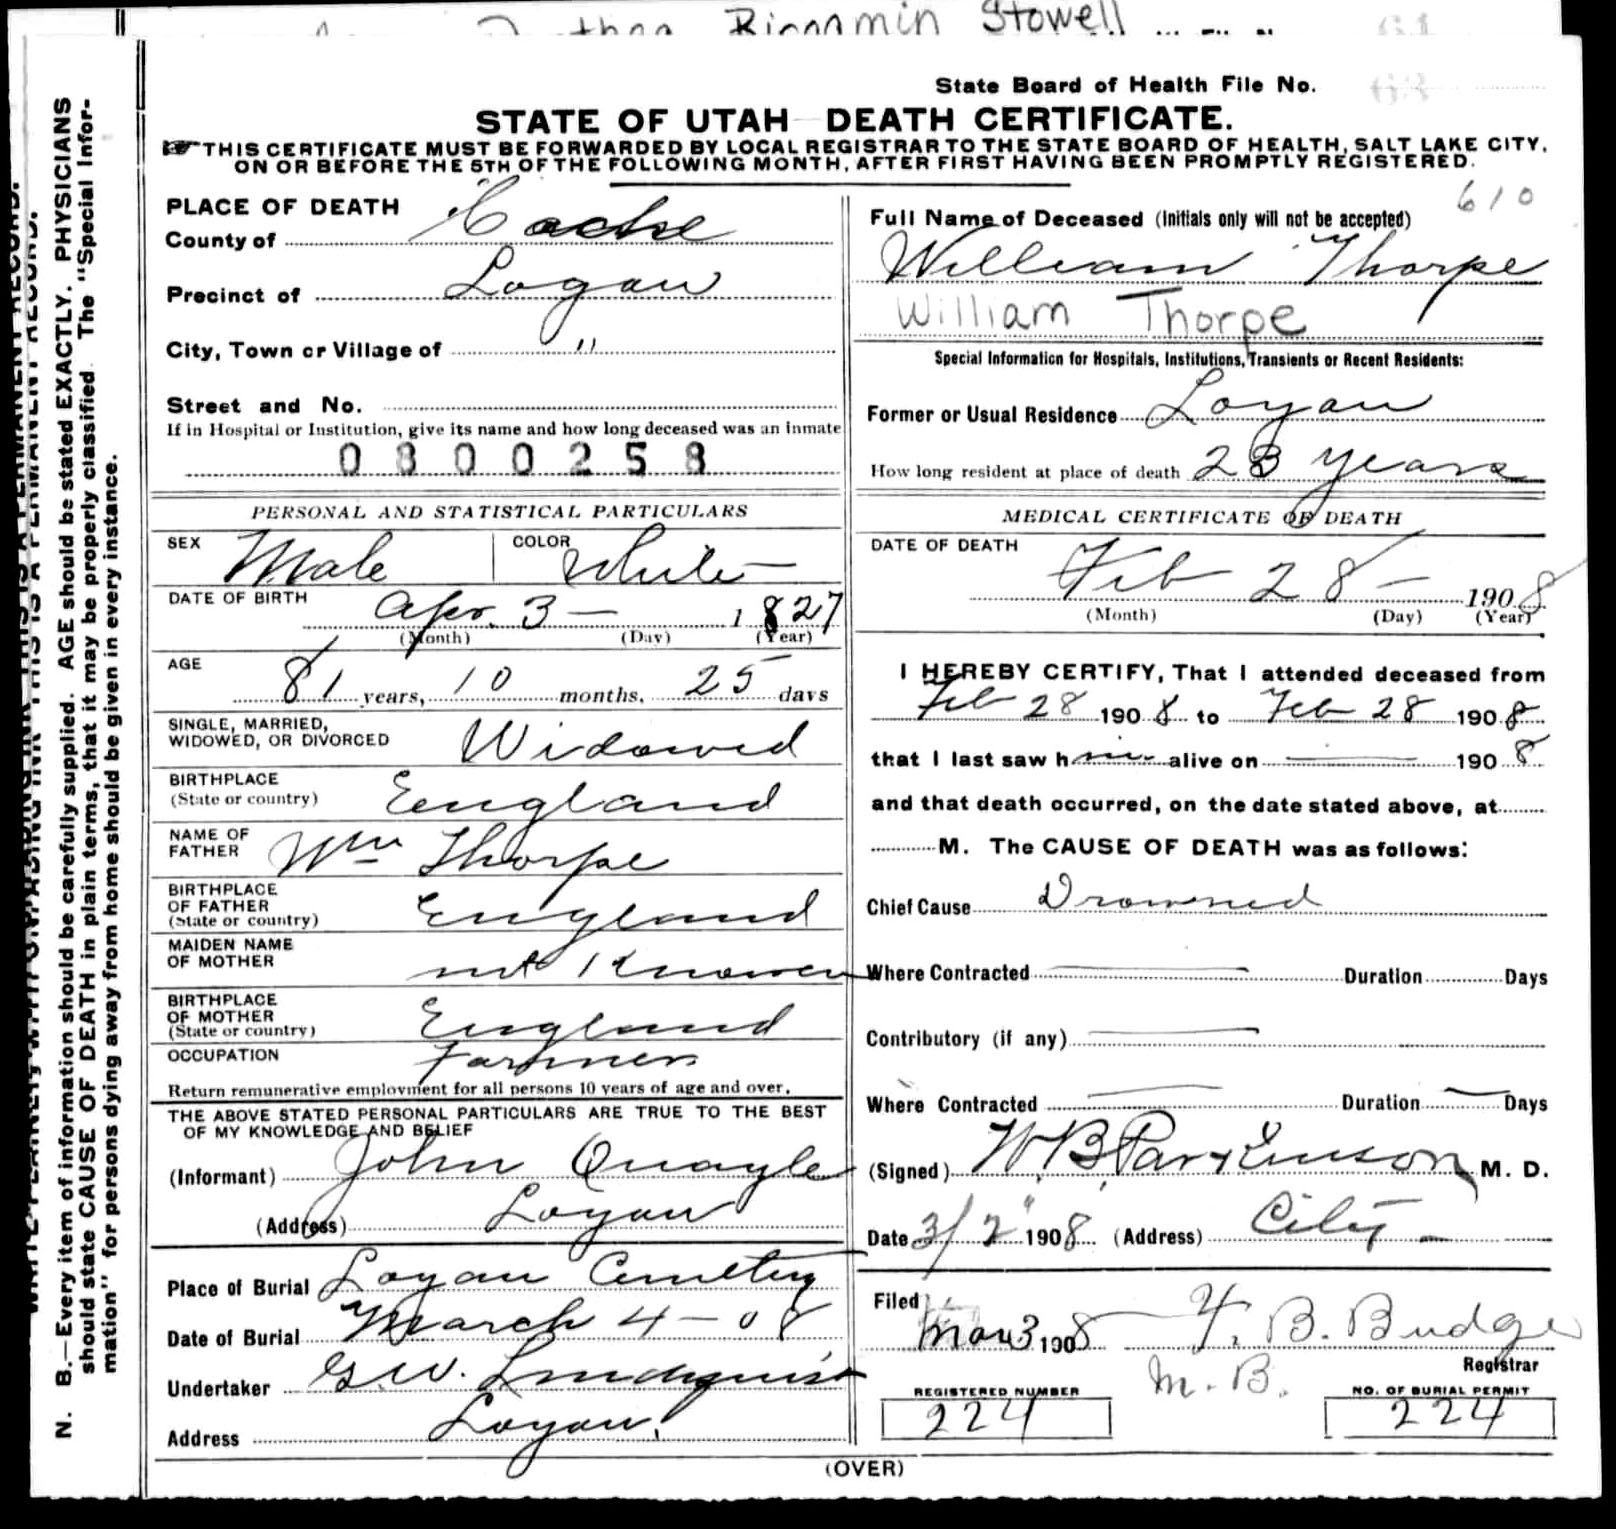 Stowell
State Board of Health File No. 63
STATE OF UTAH DEATH CERTIFICATE.
THIS CERTIFICATE MUST BE FORWARDED BY LOCAL REGISTRAR TO THE STATE BOARD OF HEALTH, SALT LAKE CITY,
ON OR BEFORE THE 5TH OF THE FOLLOWING MONTH, AFTER FIRST HAVING BEEN PROMPTLY REGISTERED.
N. B.—Every item of information should be carefully supplied. AGE should be stated EXACTLY. PHYSICIANS
should state CAUSE OF DEATH in plain terms, that it may be properly classified. The "Special Infor-
mation" for persons dying away from home should be given in every instance.
PLACE OF DEATH
County of Cache
Precinct of Logan
City, Town or Village of "
Street and No.
If in Hospital or Institution, give its name and how long deceased was an inmate
0800258
PERSONAL AND STATISTICAL PARTICULARS
SEX Male COLOR White
DATE OF BIRTH Apr. 3 — 1827
(Month) (Day) (Year)
AGE 81 years, 10 months, 25 days
SINGLE, MARRIED,
WIDOWED, OR DIVORCED Widowed
BIRTHPLACE
(State or country) Eengland
NAME OF
FATHER Wm Thorpe
BIRTHPLACE
OF FATHER
(State or country) England
MAIDEN NAME
OF MOTHER not Known
BIRTHPLACE
OF MOTHER
(State or country) England
OCCUPATION Farmer
Return remunerative employment for all persons 10 years of age and over.
THE ABOVE STATED PERSONAL PARTICULARS ARE TRUE TO THE BEST
OF MY KNOWLEDGE AND BELIEF
(Informant) John Quayle
(Address) Logan
Place of Burial Logan Cemetery
Date of Burial March 4 - 08
Undertaker G W. Lindquist
Address Logan.
610
Full Name of Deceased (Initials only will not be accepted)
William Thorpe
William Thorpe
Special Information for Hospitals, Institutions, Transients or Recent Residents:
Former or Usual Residence Logan
How long resident at place of death 23 years
MEDICAL CERTIFICATE OF DEATH
DATE OF DEATH Feb 28 — 1908
(Month) (Day) (Year)
I HEREBY CERTIFY, That I attended deceased from
Feb 28 1908 to Feb 28 1908
that I last saw him alive on — 1908
and that death occurred, on the date stated above, at
M. The CAUSE OF DEATH was as follows:
Chief Cause Drowned
Where Contracted — Duration Days
Contributory (if any) —
Where Contracted — Duration — Days
(Signed) W B Parkinson M. D.
Date 3/2" 1908 (Address) City —
Filed Mar 3 1908 F. B. Budge
Registrar
M. B.
REGISTERED NUMBER
224
NO. OF BURIAL PERMIT
224
(OVER)